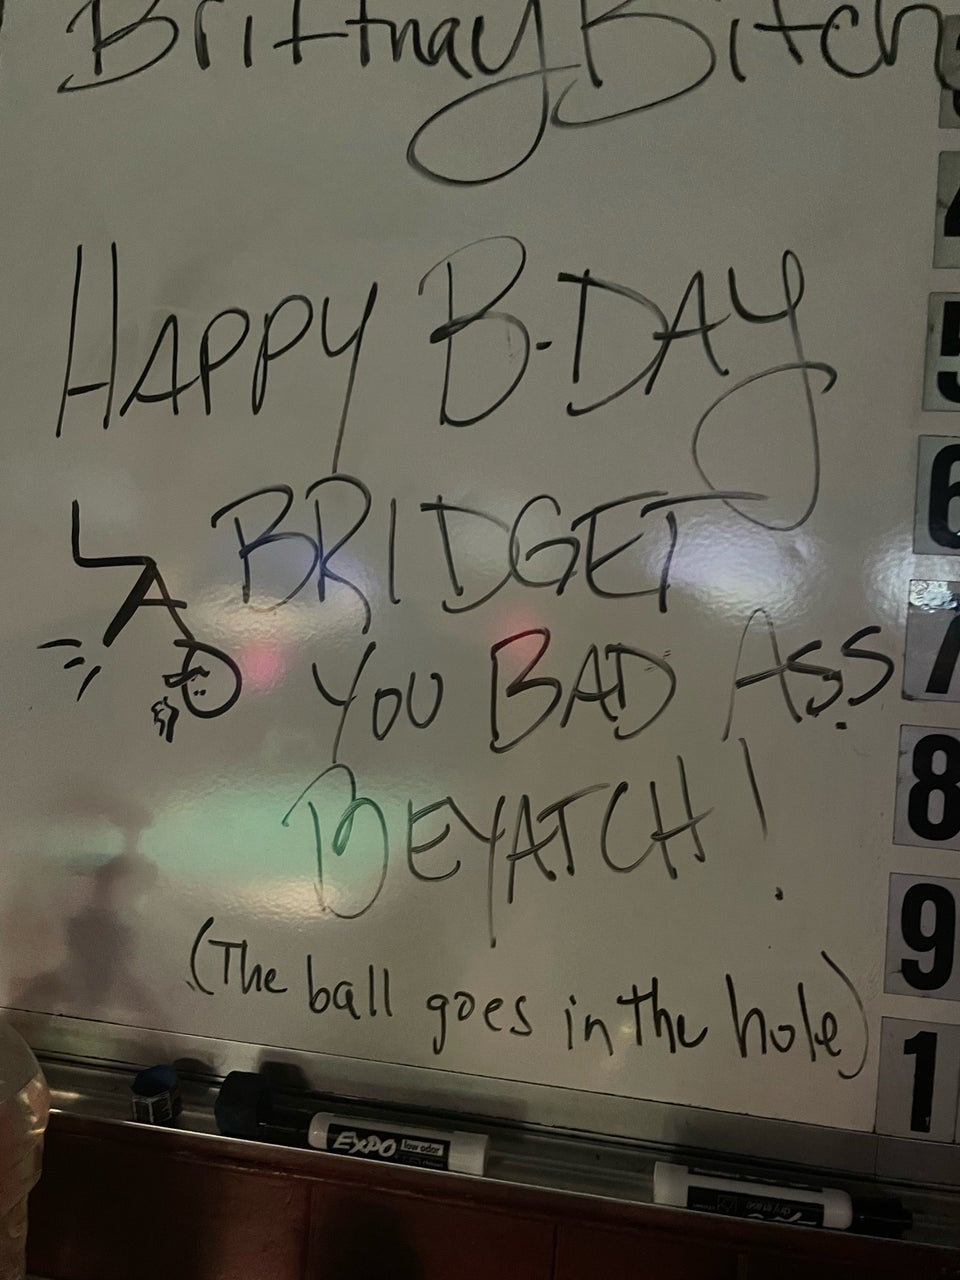 Brittnay Bitch
HAPPY B-DAY
BRIDGET
YOU BAD ASS
BEYATCH!
(The ball goes in the hole)
5
6
7
8
9
1
EXPO low odor
dry erase